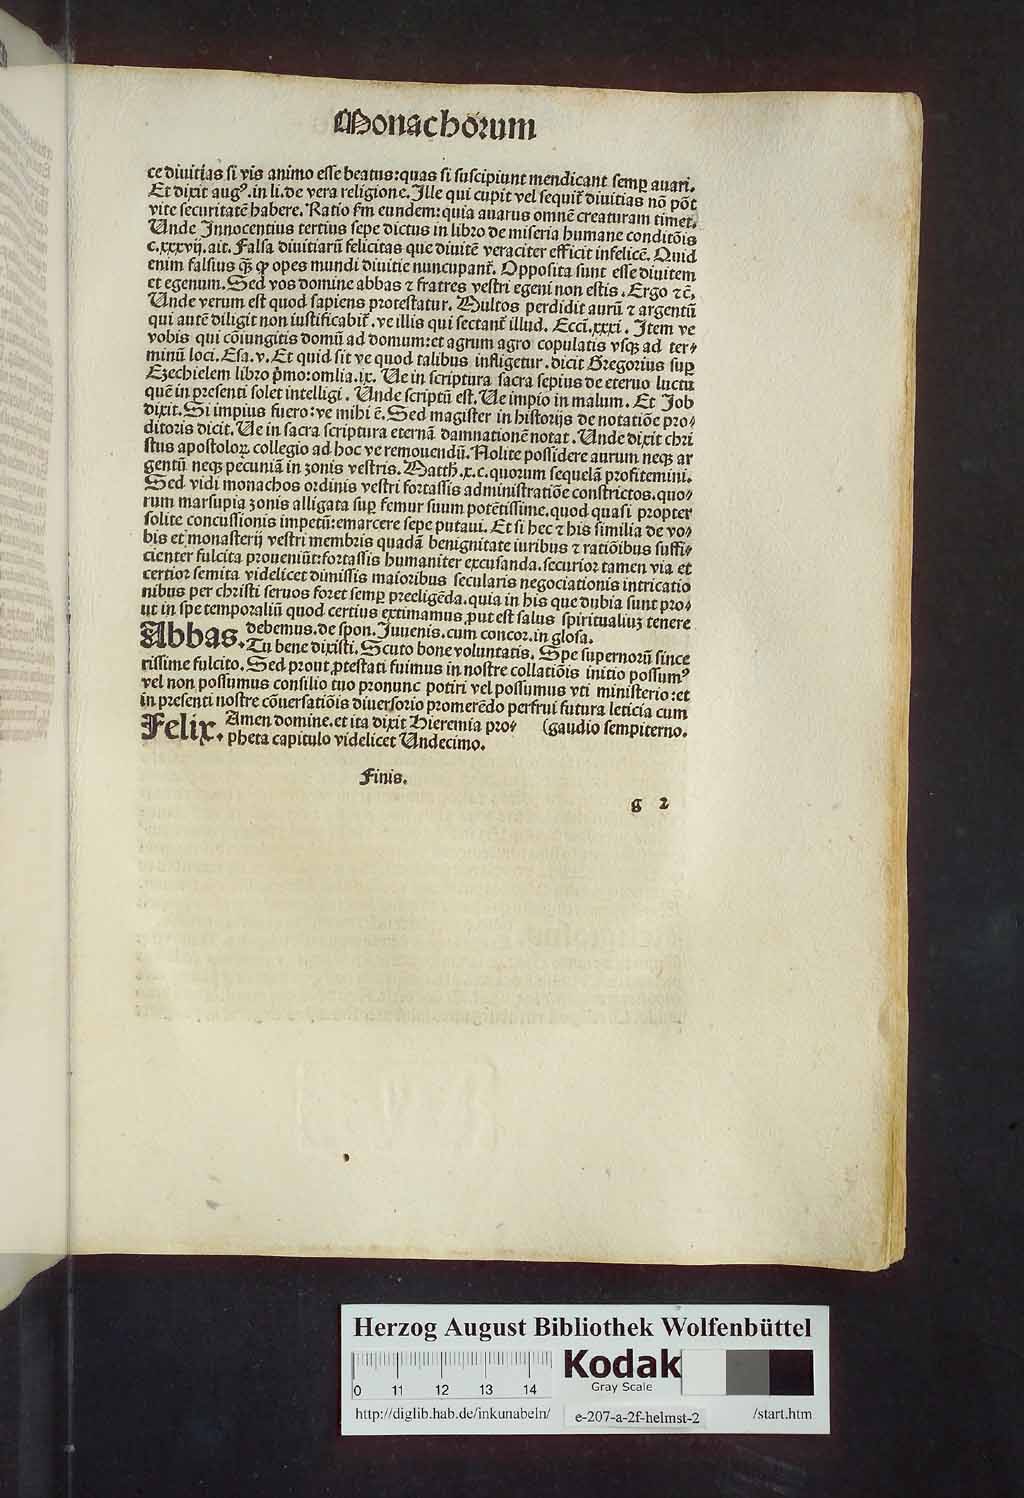 Monachorum
ce diuitias si vis animo esse beatus: quas si suscipiunt mendicant semꝑ auari.
Et dixit augꝰ. in li. de vera religione. Ille qui cupit vel sequit᷑ diuitias nō pōt
vite securitatē habere. Ratio ẜm eundem: quia auarus omnē creaturam timet.
Unde Innocentius tertius sepe dictus in libro de miseria humane conditōis
c. xxxvij. ait. Falsa diuitiarū felicitas que diuitē veraciter efficit infelicē. Quid
enim falsius qͣꝫ ꝙ opes mundi diuitie nuncupant᷑. Opposita sunt esse diuitem
et egenum. Sed vos domine abbas ⁊ fratres vestri egeni non estis. Ergo ⁊ ē.
Unde verum est quod sapiens protestatur. Multos perdidit aurū ⁊ argentū
qui autē diligit non iustificabit᷑. ve illis qui sectant᷑ illud. Ecci. xxxi. Item ve
vobis qui cōiungitis domū ad domum: et agrum agro copulatis vsqꝫ ad ter⸗
minū loci. Esa. v. Et quid sit ve quod talibus infligetur. dicit Gregorius suꝑ
Ezechielem libro p̄mo: omlia. ix. Ue in scriptura sacra sepius de eterno luctu
quē in presenti solet intelligi. Unde scriptū est. Ue impio in malum. Et Job
dixit. Si impius fuero: ve mihi ē. Sed magister in historijs de notatiōe pro⸗
ditoris dicit. Ue in sacra scriptura eternā damnationē notat. Unde dixit chri
stus apostoloꝝ collegio ad hoc ve remouendū. Nolite possidere aurum neqꝫ ar
gentū neqꝫ pecuniā in zonis vestris. Matth. x. c. quorum sequelā profitemini.
Sed vidi monachos ordinis vestri fortassis administratiōe constrictos. quo⸗
rum marsupia zonis alligata suꝑ femur suum potētissime. quod quasi propter
solite concussionis impetū: emarcere sepe putaui. Et si hec ⁊ his similia de vo⸗
bis et monasterij vestri membris quadā benignitate iuribus ⁊ ratiōibus suffi⸗
cienter fulcita proueniūt: fortassis humaniter excusanda. securior tamen via et
certior semita videlicet dimissis maioribus secularis negociationis intricatio
nibus per christi seruos foret semꝑ preeligēda. quia in his que dubia sunt pro⸗
ut in spe temporaliū quod certius extimamus ꝓut est salus spiritualiuꝫ tenere
debemus. de spon. Juuenis. cum concor. in glosa.
Abbas. Tu bene dixisti. Scuto bone voluntatis. Spe supernorū since
rissime fulcito. Sed prout ꝓtestati fuimus in nostre collatiōis initio possumꝰ
vel non possumus consilio tuo pronunc potiri vel possumus vti ministerio: et
in presenti nostre cōuersatiōis diuersorio promerēdo perfrui futura leticia cum
(gaudio sempiterno.
Felix. Amen domine. et ita dixit Hieremia pro⸗
pheta capitulo videlicet Undecimo.
Finis.
g 2
Herzog August Bibliothek Wolfenbüttel
Kodak
Gray Scale
0 11 12 13 14
http://diglib.hab.de/inkunabeln/ e-207-a-2f-helmst-2 /start.htm